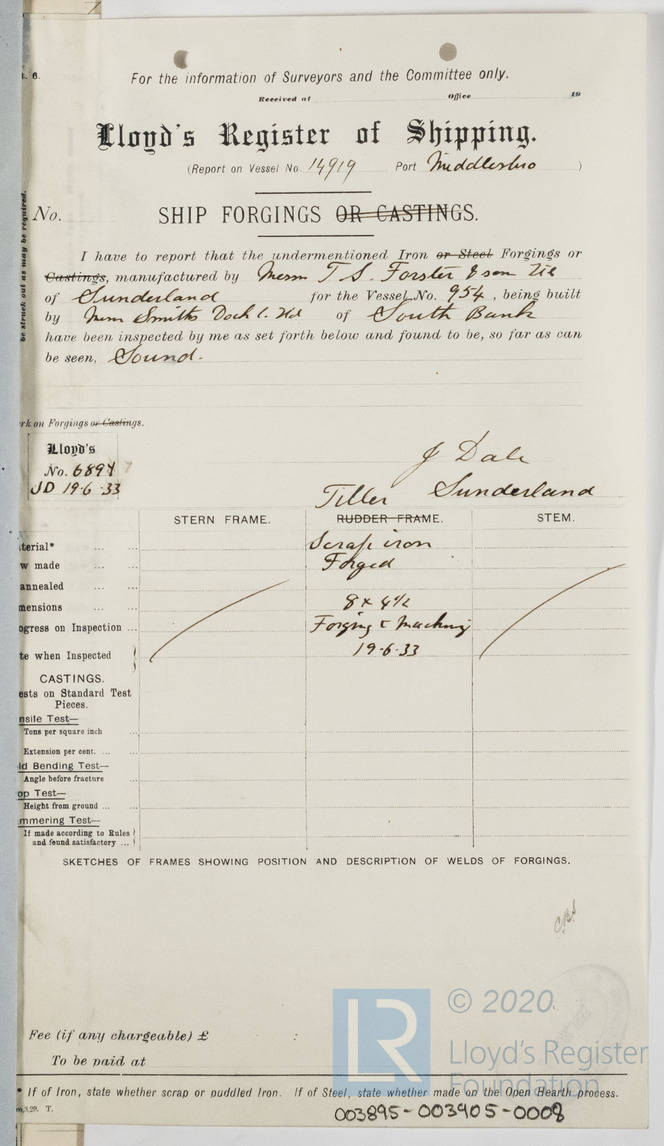 . 6.
For the information of Surveyors and the Committee only.
Received at Office 19
Lloyd's Register of Shipping.
(Report on Vessel No. 14919 Port Middlesbro )
No. SHIP FORGINGS OR CASTINGS.
be struck out as may be required.
I have to report that the undermentioned Iron or Steel Forgings or
Castings, manufactured by Messrs T S. Forster & son Ltd
of Sunderland for the Vessel No. 954, being built
by Messrs Smiths Dock C. Ltd of South Bank
have been inspected by me as set forth below and found to be, so far as can
be seen, Sound.
rk on Forgings or Castings.
Lloyd's
No. 6897
JD 19-6-33
J Dale
Tiller Sunderland
STERN FRAME. RUDDER FRAME. STEM.
terial* ... ... Scrap iron
w made ... ... Forged
annealed ... ...
mensions ... ... 8 x 4 1/2
ogress on Inspection ... Forging &
te when Inspected 19-6-33
CASTINGS.
ests on Standard Test
Pieces.
nsile Test—
Tons per square inch ...
Extension per cent. ... ...
ld Bending Test—
Angle before fracture ...
op Test—
Height from ground ... ...
mmering Test—
If made according to Rules
and found satisfactory ...
SKETCHES OF FRAMES SHOWING POSITION AND DESCRIPTION OF WELDS OF FORGINGS.
LR
© 2020
Lloyd's Register
Foundation
Fee (if any chargeable) £ :
To be paid at
* If of Iron, state whether scrap or puddled Iron. If of Steel, state whether made on the Open Hearth process.
,3,29. T.
003895-003905-0008